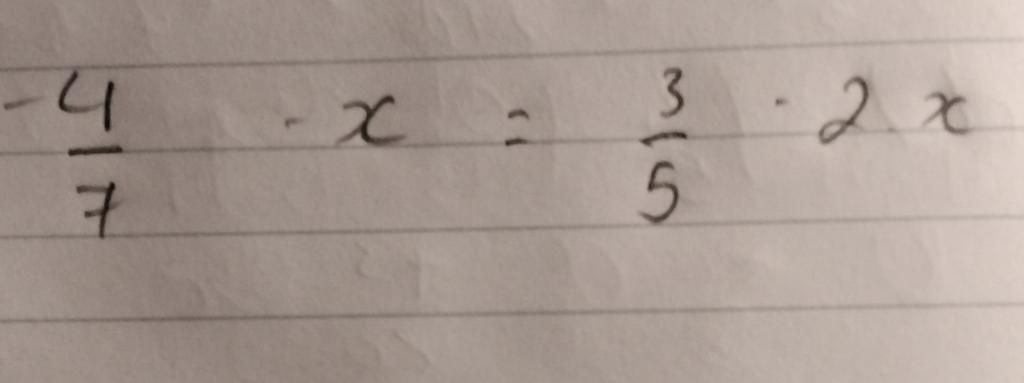 -4/7 · x = 3/5 · 2x